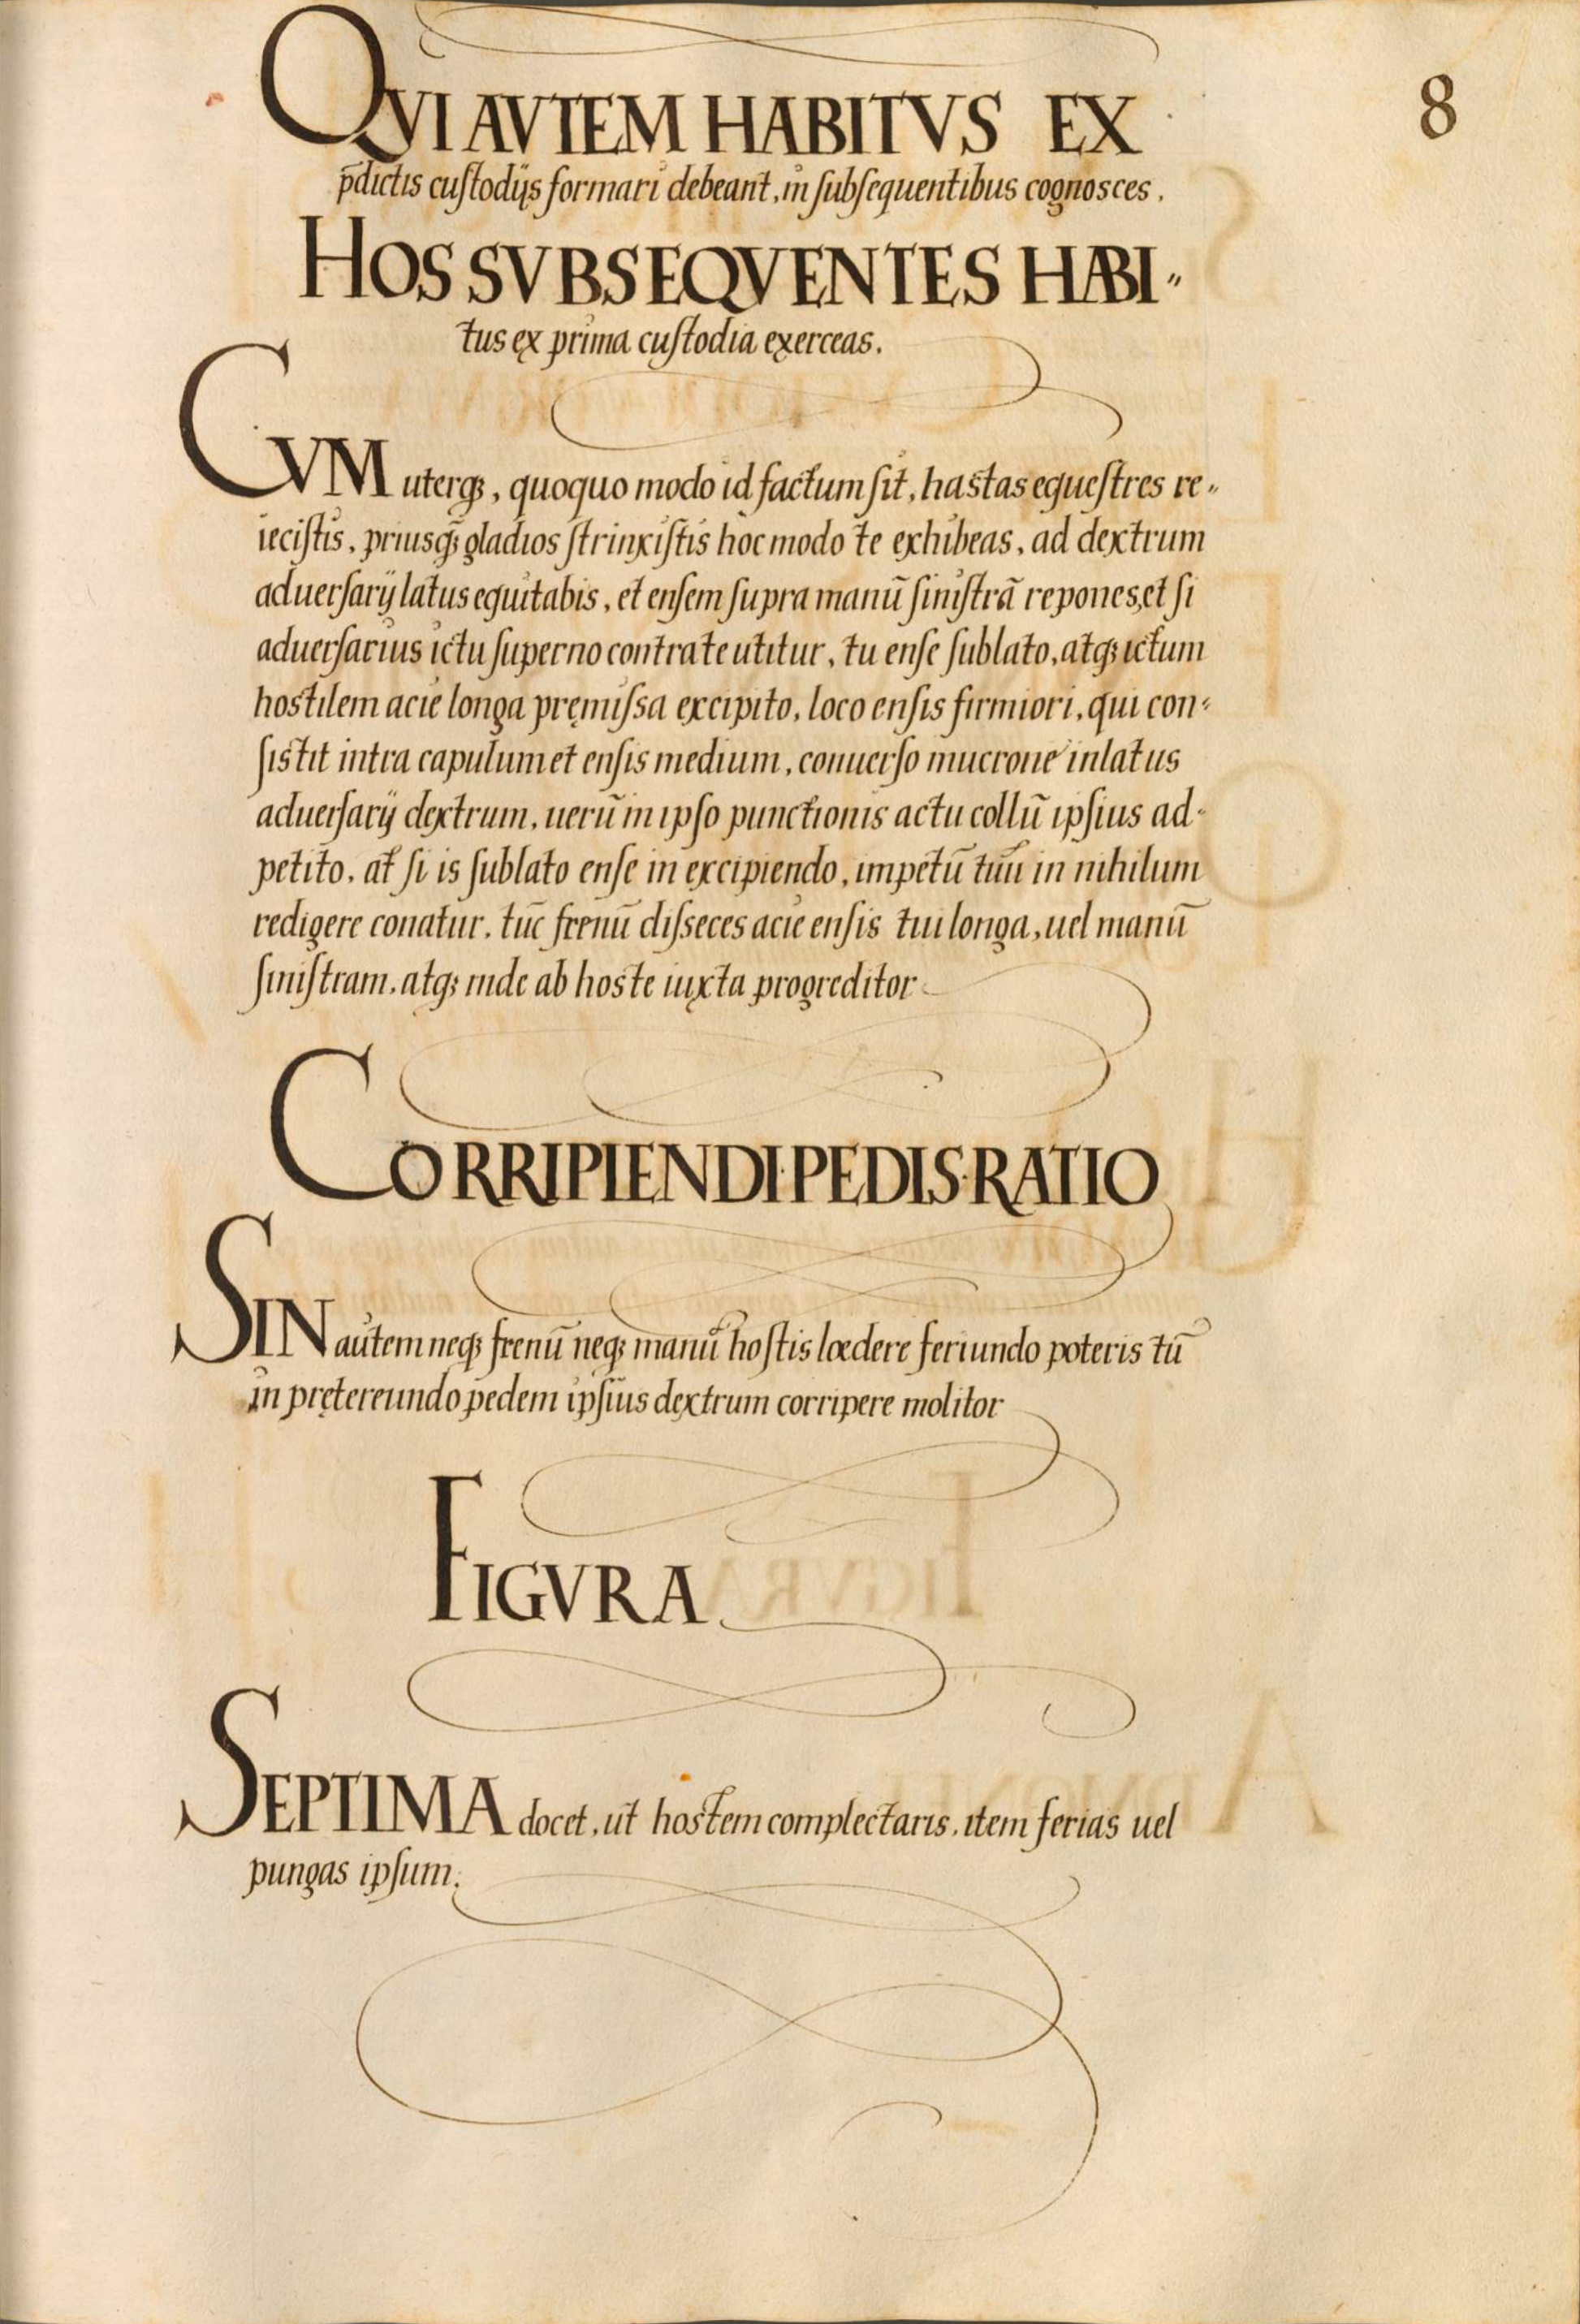 8
QVI AVTEM HABITVS EX
p̄dictis cuſtodijs formari debeant, in ſubſequentibus cognosces.
HOS SVBSEQVENTES HABI⸗
tus ex prima cuſtodia exerceas.
CVM uterqꝫ, quoquo modo id factum ſit, hastas equeſtres re⸗
ieciſtis, priusqꝫ̄ gladios ſtrinxiſtis hoc modo te exhibeas, ad dextrum
aduerſarij latus equitabis, et enſem ſupra manū ſiniſtrā repones, et ſi
aduerſarius ictu ſuperno contra te utitur, tu enſe ſublato, atqꝫ ictum
hostilem acie longa pręmiſsa excipito, loco enſis firmiori, qui con⸗
ſistit intra capulum et enſis medium, conuerſo mucrone in latus
aduerſarij dextrum, uerū in ipſo punctionis actu collū ipſius ad⸗
petito. at ſi is ſublato enſe in excipiendo, impetū tuū in nihilum
redigere conatur. tūc frenū diſseces acie enſis tui longa, uel manū
ſiniſtram. atqꝫ inde ab hoste iuxta progreditor
CORRIPIENDI·PEDIS·RATIO
SIN autem neqꝫ frenū neqꝫ manū hoſtis lædere feriundo poteris tū
in prętereundo pedem ipſius dextrum corripere molitor
FIGVRA
SEPTIMA docet, ut hostem complectaris, item ferias uel
pungas ipſum.